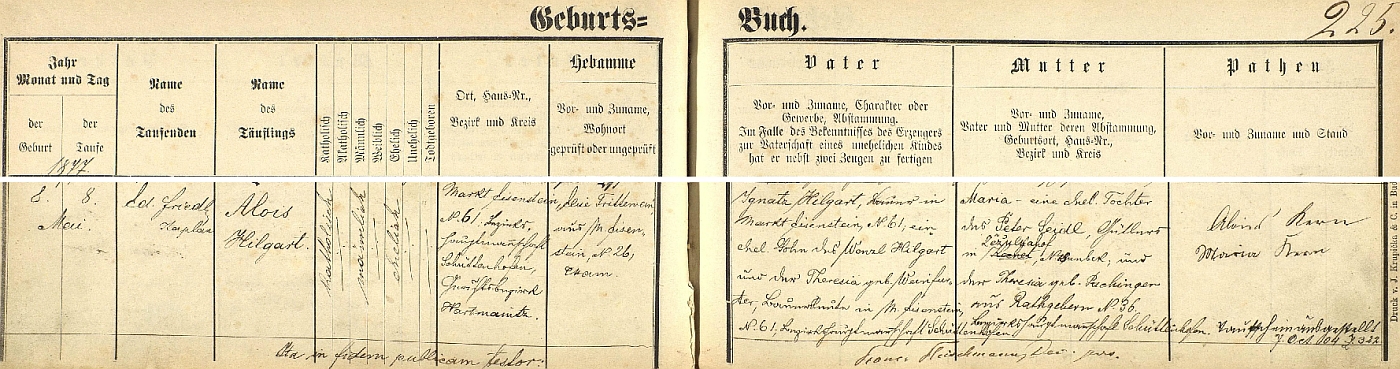 Geburts=
Buch.
225.
Jahr
Monat und Tag
der
Geburt
der
Taufe
1877.
Name
des
Taufenden
Name
des
Täuflings
Katholisch
Akatholisch
Männlich
Weiblich
Ehelich
Unehelich
Todtgeboren
Ort, Haus-Nr.,
Bezirk und Kreis
Hebamme
Vor- und Zuname,
Wohnort
geprüft oder ungeprüft
Vater
Vor- und Zuname, Charakter oder
Gewerbe, Abstammung.
Im Falle des Bekenntnisses des Erzeugers
zur Vaterschaft eines unehelichen Kindes
hat er nebst zwei Zeugen zu fertigen
Mutter
Vor- und Zuname,
Vater und Mutter deren Abstammung,
Geburtsort, Haus-Nr.,
Bezirk und Kreis
Pathen
Vor- und Zuname und Stand
8. 8.
Mai
Ed. Friedl
Kaplan
Alois
Hilgart.
katholisch
männlich
ehelich
Markt Eisenstein,
N. 61, Bezirks-
hauptmannschaft
Schüttenhofen,
Gerichtsbezirk
Hartmanitz.
aus M. Eisen-
stein, N. 26,
Exam.
Ignatz Hilgart, in
Markt Eisenstein, N. 61, ein
ehel. Sohn des Wenzl Hilgart
und der Theresia geb. Weinfur-
ter, in M. Eisenstein,
N. 61, Bezirkshauptmannschaft Schüttenhofen.
Maria - eine ehel. Tochter
des Peter Seidl, Gütlers
in und
der Theresia geb. Puchinger
aus Rathgebern N. 36.
Bezirkshauptmannschaft Schüttenhofen.
Alois Kern
Maria Kern
Taufschein ausgestellt
7. Oct. 904 Z. 322
Ita in fidem publicam testor:
Franc. Fleischmann, Dec. par.
Druck v. J. Krupička & C. in